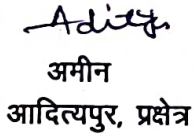 Aditya
अमीन
आदित्यपुर, प्रक्षेत्र